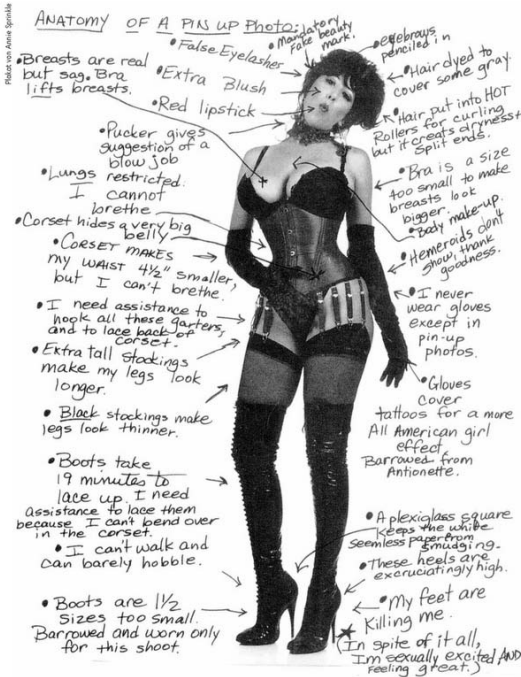 Plakat von Annie Sprinkle
ANATOMY OF A PIN UP PHOTO:
• Breasts are real
but sag. Bra
lifts breasts.
• False Eyelashes
• Extra Blush
• Red lipstick
• Pucker gives
suggestion of a
blow job
• Lungs restricted.
I cannot
brethe
• Corset hides a very big
belly
• CORSET MAKES
my WAIST 4½" smaller,
but I can't brethe.
• I need assistance to
hook all these garters,
and to lace back of
corset.
• Extra tall stockings
make my legs look
longer.
• Black stockings make
legs look thinner.
• Boots take
19 minutes to
lace up. I need
assistance to lace them
because I can't bend over
in the corset.
• I can't walk and
can barely hobble.
• Boots are 1½
sizes too small.
Barrowed and worn only
for this shoot.
• Mandatory
Fake beauty
mark.
• eyebrows
penciled in
• Hair dyed to
cover some gray.
• Hair put into HOT
Rollers for curling
but it creats dryness+
split ends.
• Bra is a size
too small to make
breasts look
bigger.
• Body make-up.
• Hemeroids don't
show, thank
goodness.
• I never
wear gloves
except in
pin-up
photos.
• Gloves
cover
tattoos for a more
All American girl
effect
Barrowed from
Antionette.
• A plexiglass square
keeps the white
seemless paper from
smudging.
• These heels are
excruciatingly high.
• My feet are
killing me.
(In spite of it all,
I'm sexually excited AND
feeling great.)